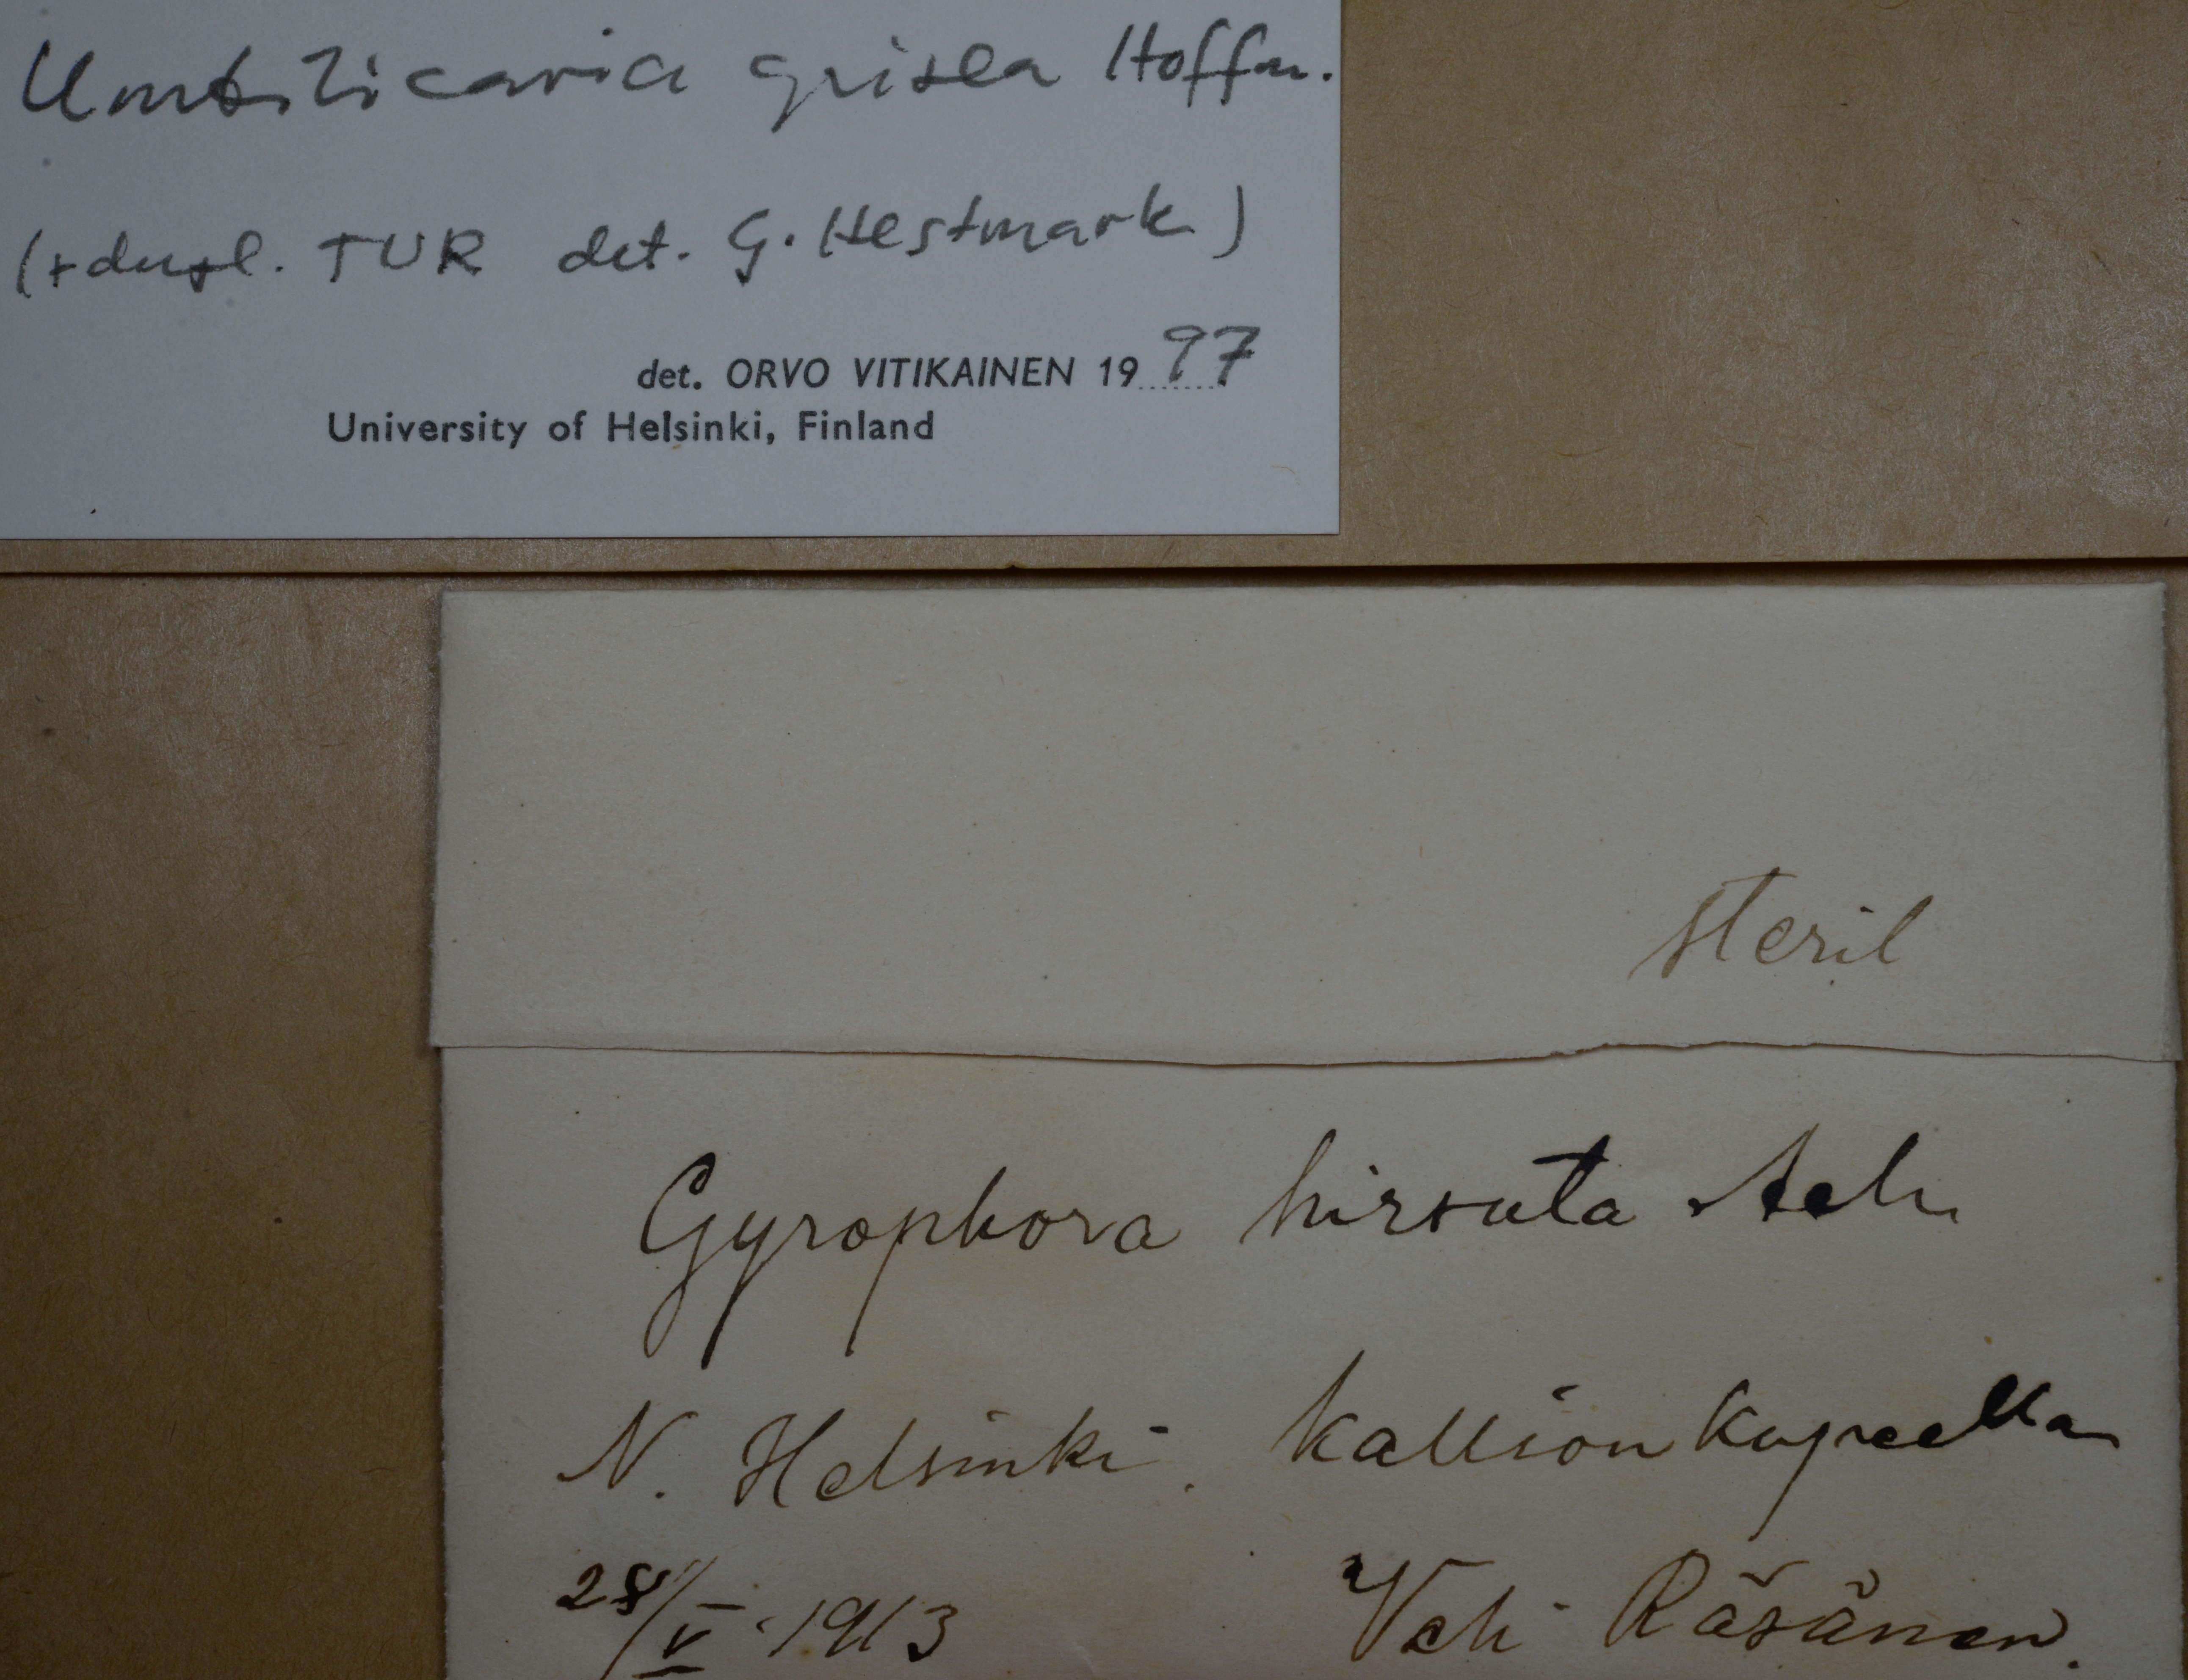 Umbilicaria grisea Hoffm.
(+dupl. TUR det. G. Hestmark)
det. ORVO VITIKAINEN 1997
University of Helsinki, Finland
steril
Gyrophora hirsuta Ach.
N. Helsinki. Kallion kupeella
28/V 1913 Veli Räsänen.